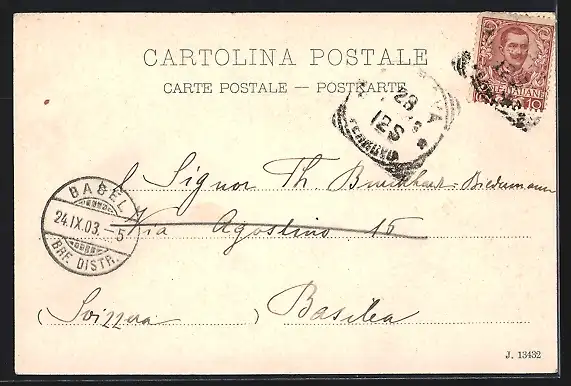 CARTOLINA POSTALE
CARTE POSTALE — POSTKARTE
POSTE ITALIANE
10
28
12 S
FERROVIA
BASEL
24.IX.03.–5
BRF. DISTR.
Signor Th. Burckhardt-Biedermann
Via Agostino 15
(Svizzera) Basilea
J. 13432